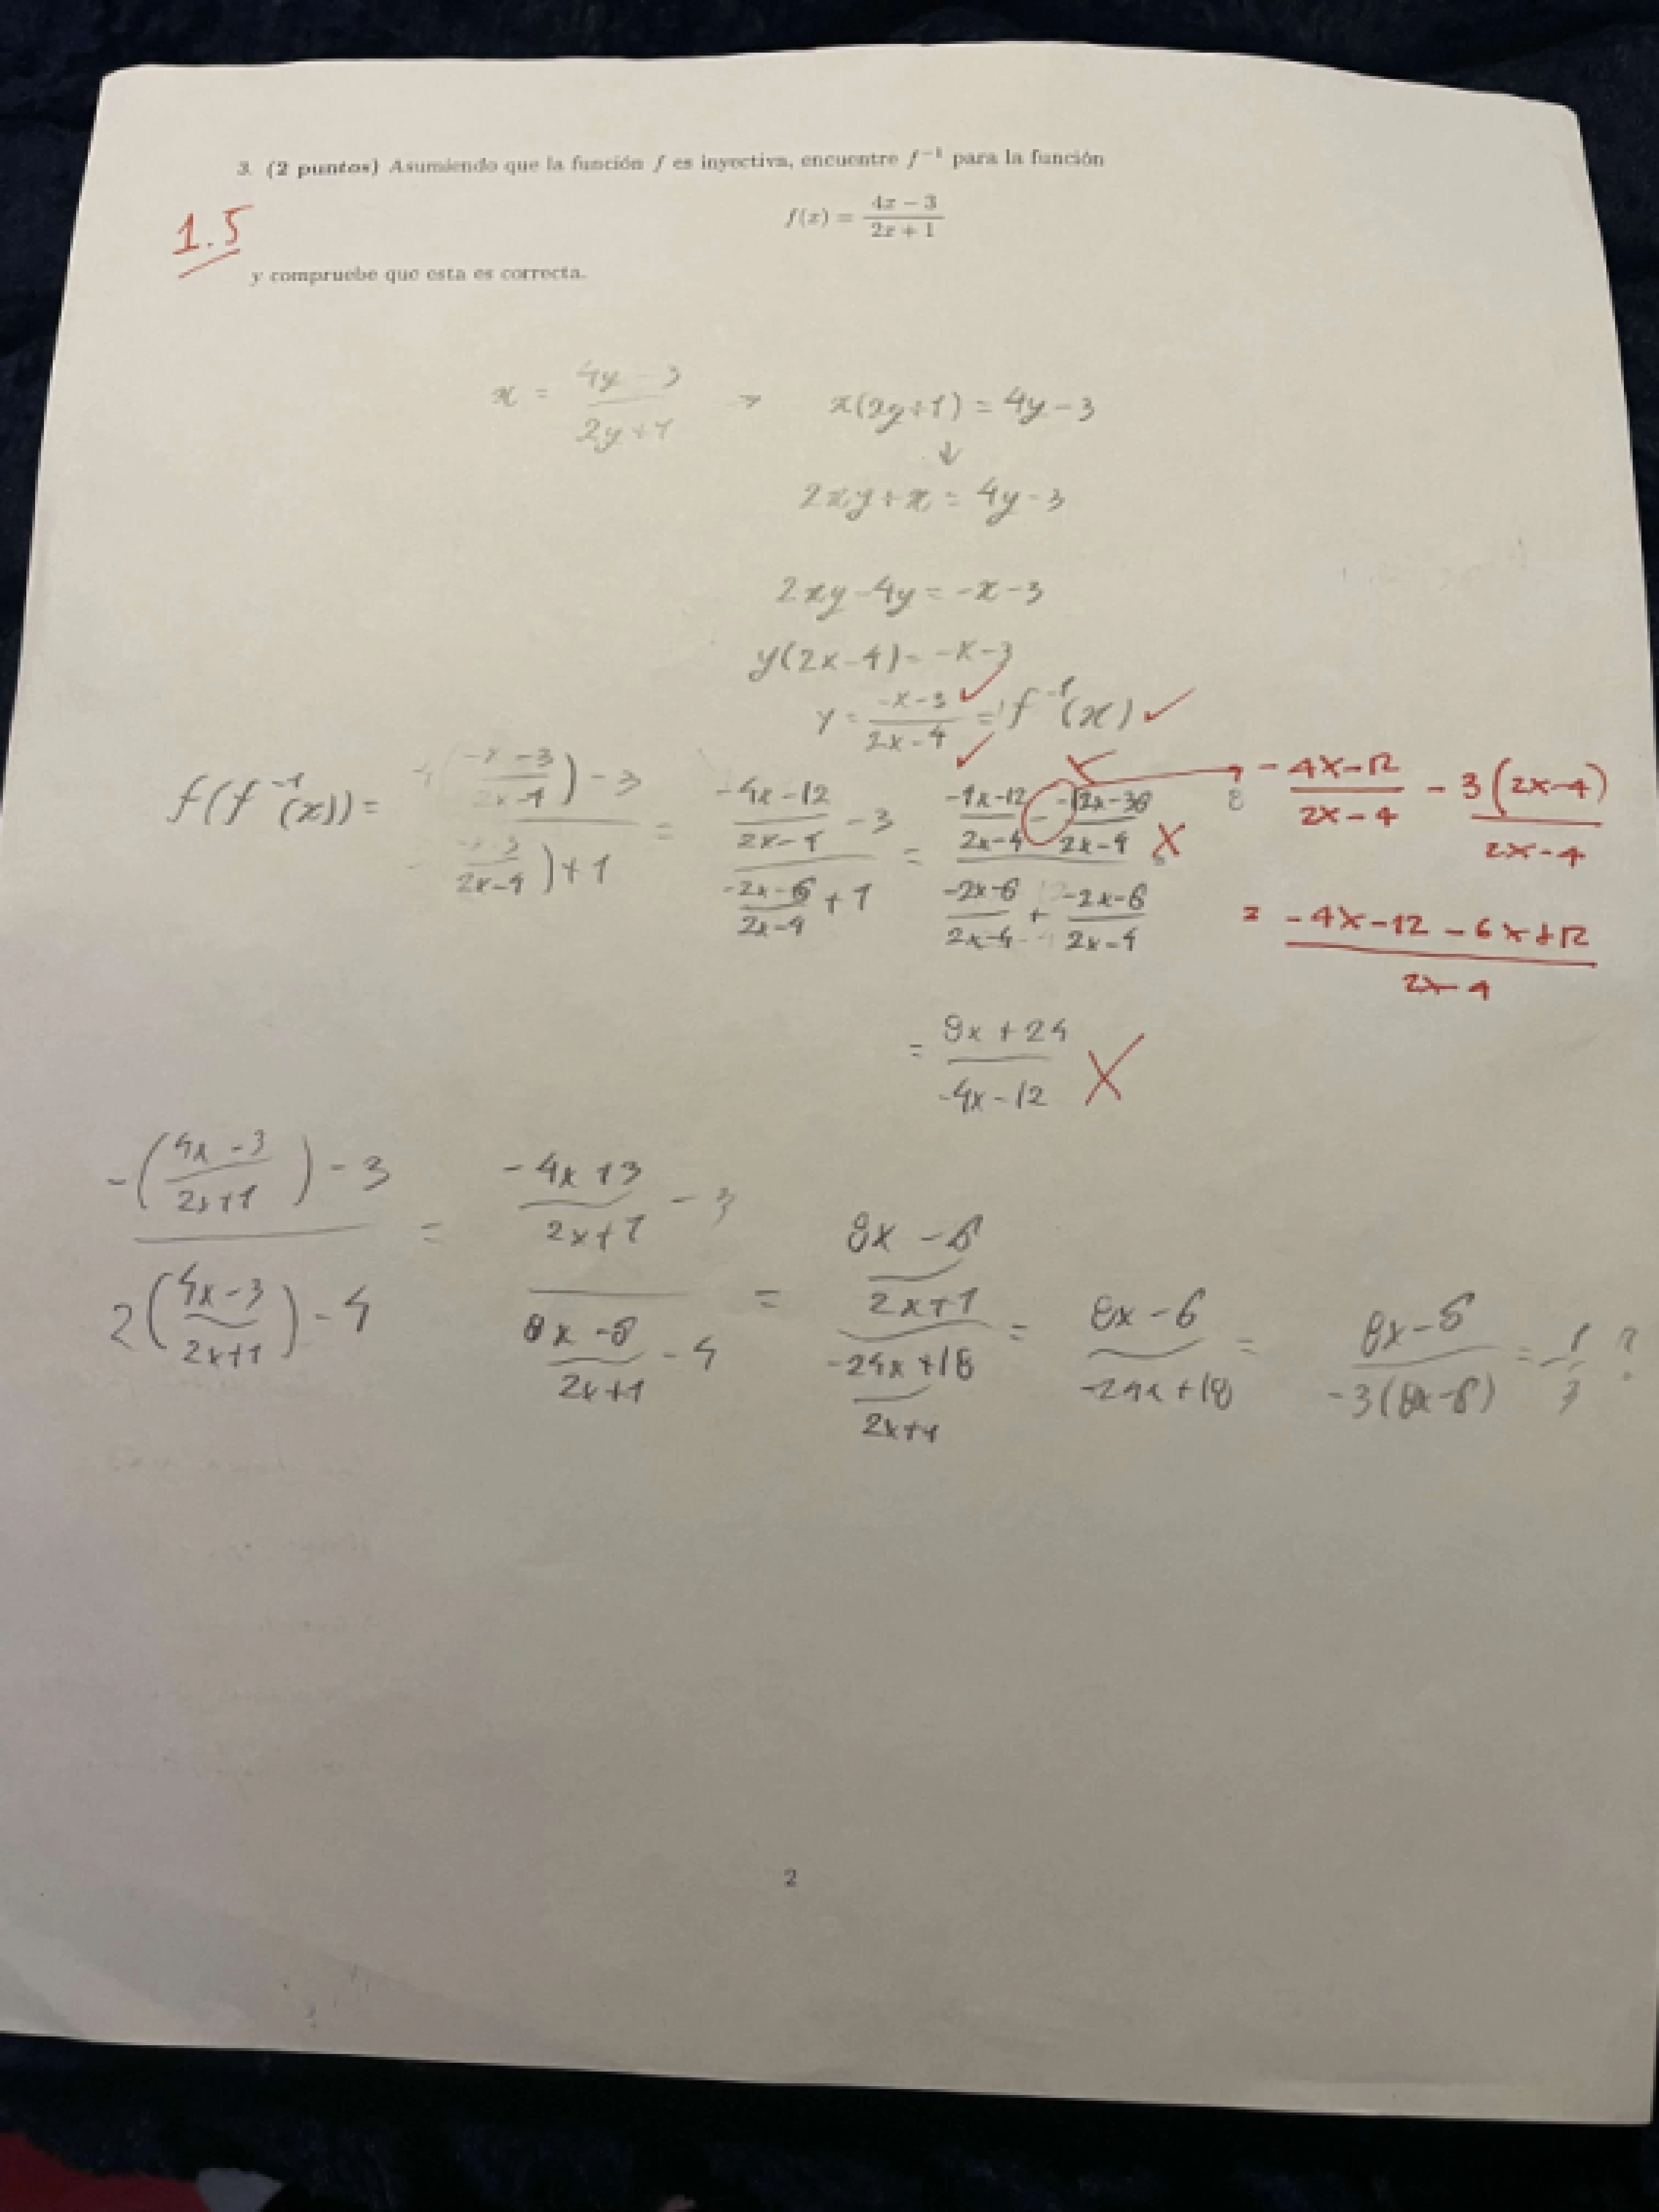 3. (2 puntos) Asumiendo que la función f es inyectiva, encuentre f⁻¹ para la función
f(x) = (4x − 3)/(2x + 1)
1.5
y compruebe que esta es correcta.
x = (4y − 3)/(2y + 1) → x(2y+1) = 4y − 3
↓
2xy + x = 4y − 3
2xy − 4y = −x − 3
y(2x − 4) = −x − 3
y = (−x − 3)/(2x − 4) = f⁻¹(x) ✓
f(f⁻¹(x)) = (4((−x − 3)/(2x − 4)) − 3)/(((−x − 3)/(2x − 4)) + 1) = ((−4x − 12)/(2x − 4) − 3)/((−2x − 6)/(2x − 4) + 1) = ((−4x − 12)/(2x − 4) − (−12x − 36)/(2x − 4))/((−2x − 6)/(2x − 4) + (−2x − 6)/(2x − 4)) X
(−4x − 12)/(2x − 4) − 3(2x − 4)/(2x − 4)
= (−4x − 12 − 6x + 12)/(2x − 4)
= (8x + 24)/(−4x − 12) X
(−((4x − 3)/(2x + 1)) − 3)/(2((4x − 3)/(2x + 1)) − 4) = ((−4x + 3)/(2x + 1) − 3)/((8x − 6)/(2x + 1) − 4) = ((8x − 6)/(2x + 1))/((−24x + 18)/(2x + 1)) = (8x − 6)/(−24x + 18) = (8x − 6)/(−3(8x − 6)) = −1/3 ?
2